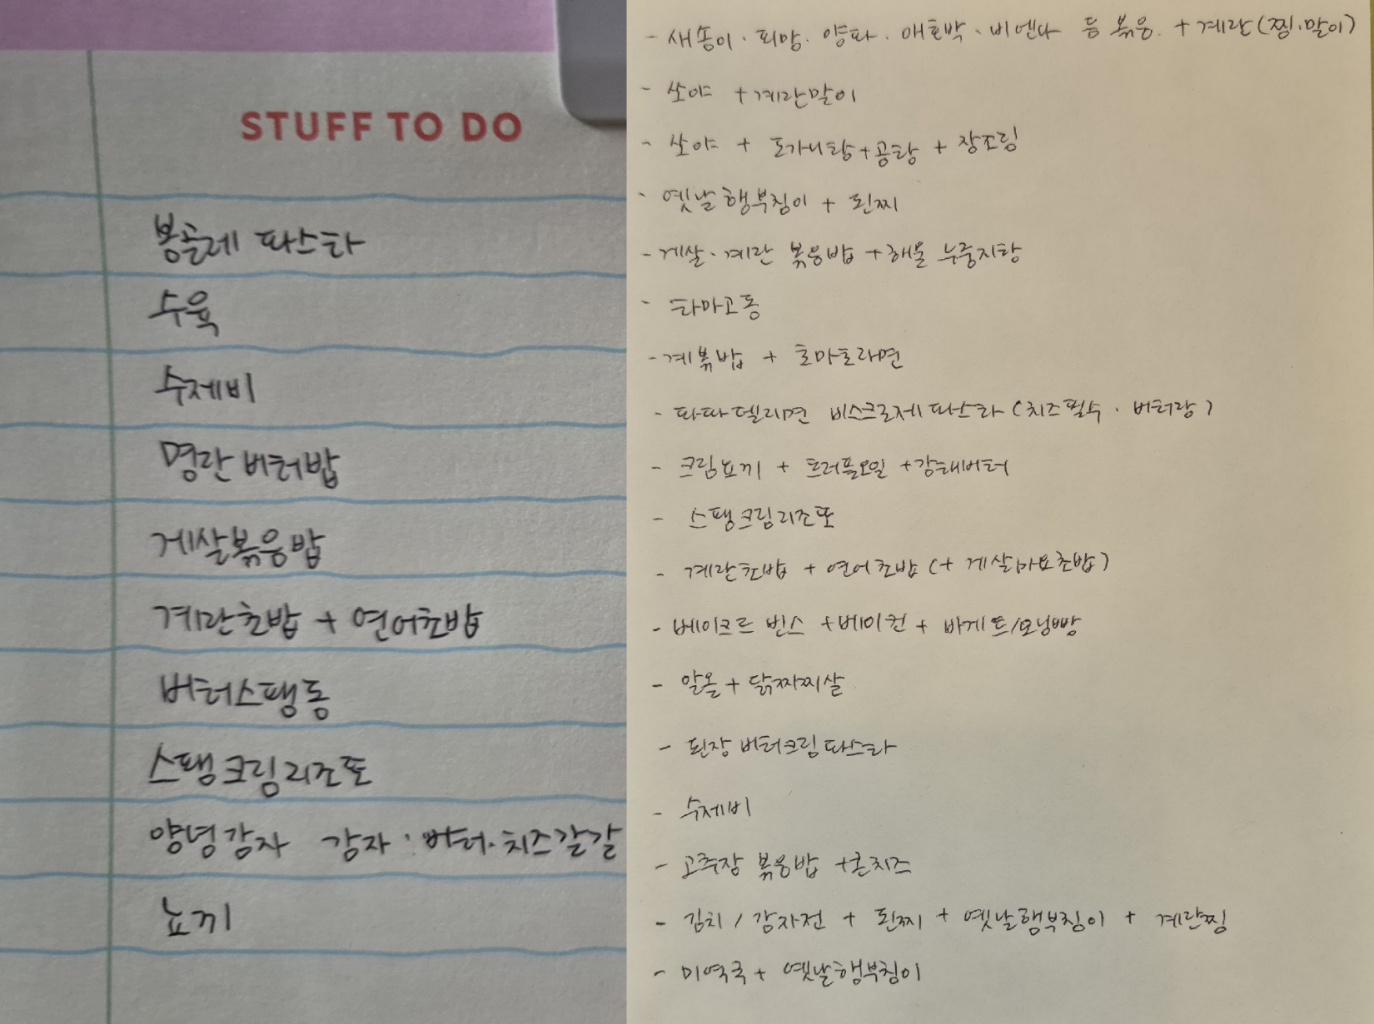 STUFF TO DO
봉골레 파스타
수육
수제비
명란버터밥
게살볶음밥
계란초밥 + 연어초밥
버터스팸동
스팸크림리조또
양념감자 감자·버터·치즈갈갈
뇨끼
- 새송이·피망·양파·애호박·비엔나 등 볶음. + 계란(찜·말이)
- 쏘야 + 계란말이
- 쏘야 + 도가니탕+곰탕 + 장조림
- 옛날행부침이 + 된찌
- 게살·계란 볶음밥 + 해물 누룽지탕
- 타마고동
- 계볶밥 + 토마토라면
- 파파델리면 비스크로제파스타(치즈필수·버터랑)
- 크림뇨끼 + 트러플오일 + 감태버터
- 스팸크림리조또
- 계란초밥 + 연어초밥 (+ 게살마요초밥)
- 베이크드 빈스 + 베이컨 + 바게트/모닝빵
- 알올 + 닭짜찌살
- 된장버터크림파스타
- 수제비
- 고추장 볶음밥 + 콘치즈
- 김치 / 감자전 + 된찌 + 옛날행부침이 + 계란찜
- 미역국 + 옛날행부침이